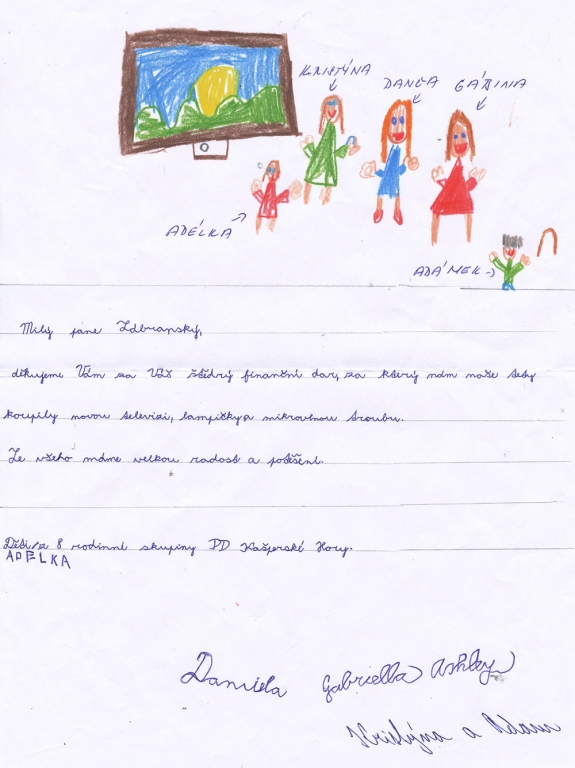 KRISTÝNA
DANČA
GÁBINA
ADÉLKA
ADÁMEK
Milý páne Zdbranský,
děkujeme Vám za Váš štědrý finanční dar, za který nám naše tety
koupily novou televizi, lampičky a mikrovlnou troubu.
Ze všeho máme velkou radost a potěšení.
Děti z 8 rodinné skupiny DD Kašperské Hory.
ADELKA
Daniela Gabriella Ashley
Kristýna a Adam